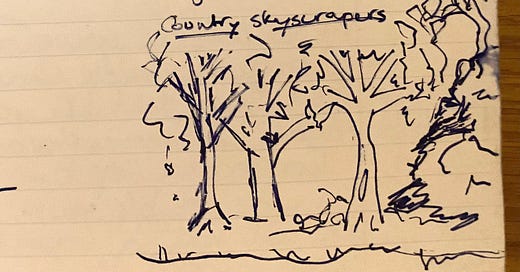 Country skyscrapers